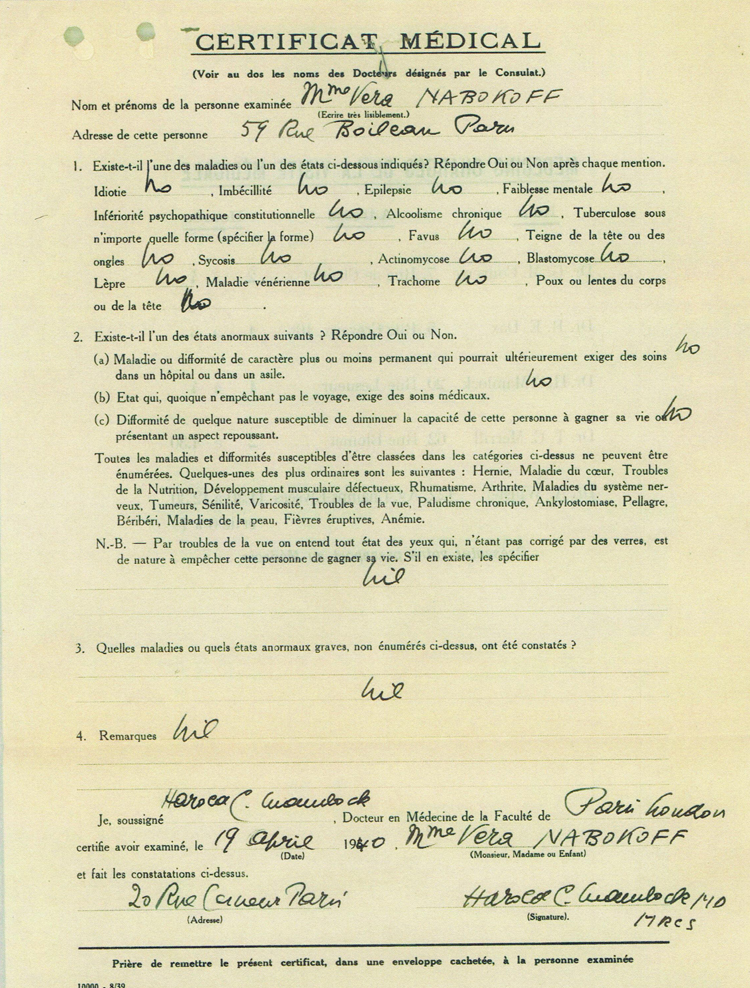 CERTIFICAT MÉDICAL
(Voir au dos les noms des Docteurs désignés par le Consulat.)
Nom et prénoms de la personne examinée Mme Vera NABOKOFF
(Ecrire très lisiblement.)
Adresse de cette personne 59 Rue Boileau Paris
1. Existe-t-il l'une des maladies ou l'un des états ci-dessous indiqués? Répondre Oui ou Non après chaque mention.
Idiotie no , Imbécillité no , Epilepsie no , Faiblesse mentale no ,
Infériorité psychopathique constitutionnelle no , Alcoolisme chronique no , Tuberculose sous
n'importe quelle forme (spécifier la forme) no , Favus no , Teigne de la tête ou des
ongles no , Sycosis no , Actinomycose no , Blastomycose no ,
Lèpre no , Maladie vénérienne no , Trachome no , Poux ou lentes du corps
ou de la tête no .
2. Existe-t-il l'un des états anormaux suivants ? Répondre Oui ou Non.
(a) Maladie ou difformité de caractère plus ou moins permanent qui pourrait ultérieurement exiger des soins no
dans un hôpital ou dans un asile.
(b) Etat qui, quoique n'empêchant pas le voyage, exige des soins médicaux. no
(c) Difformité de quelque nature susceptible de diminuer la capacité de cette personne à gagner sa vie ou no
présentant un aspect repoussant.
Toutes les maladies et difformités susceptibles d'être classées dans les catégories ci-dessus ne peuvent être
énumérées. Quelques-unes des plus ordinaires sont les suivantes : Hernie, Maladie du cœur, Troubles
de la Nutrition, Développement musculaire défectueux, Rhumatisme, Arthrite, Maladies du système ner-
veux, Tumeurs, Sénilité, Varicosité, Troubles de la vue, Paludisme chronique, Ankylostomiase, Pellagre,
Béribéri, Maladies de la peau, Fièvres éruptives, Anémie.
N.-B. — Par troubles de la vue on entend tout état des yeux qui, n'étant pas corrigé par des verres, est
de nature à empêcher cette personne de gagner sa vie. S'il en existe, les spécifier
nil
3. Quelles maladies ou quels états anormaux graves, non énumérés ci-dessus, ont été constatés ?
nil
4. Remarques nil
Je, soussigné Harold C. , Docteur en Médecine de la Faculté de Paris London
certifie avoir examiné, le 19 April 1940, Mme Vera NABOKOFF
(Date) (Monsieur, Madame ou Enfant)
et fait les constatations ci-dessus.
20 Rue Paris Harold C. MD
(Adresse) (Signature). MRCS
Prière de remettre le présent certificat, dans une enveloppe cachetée, à la personne examinée
10000 - 8/39